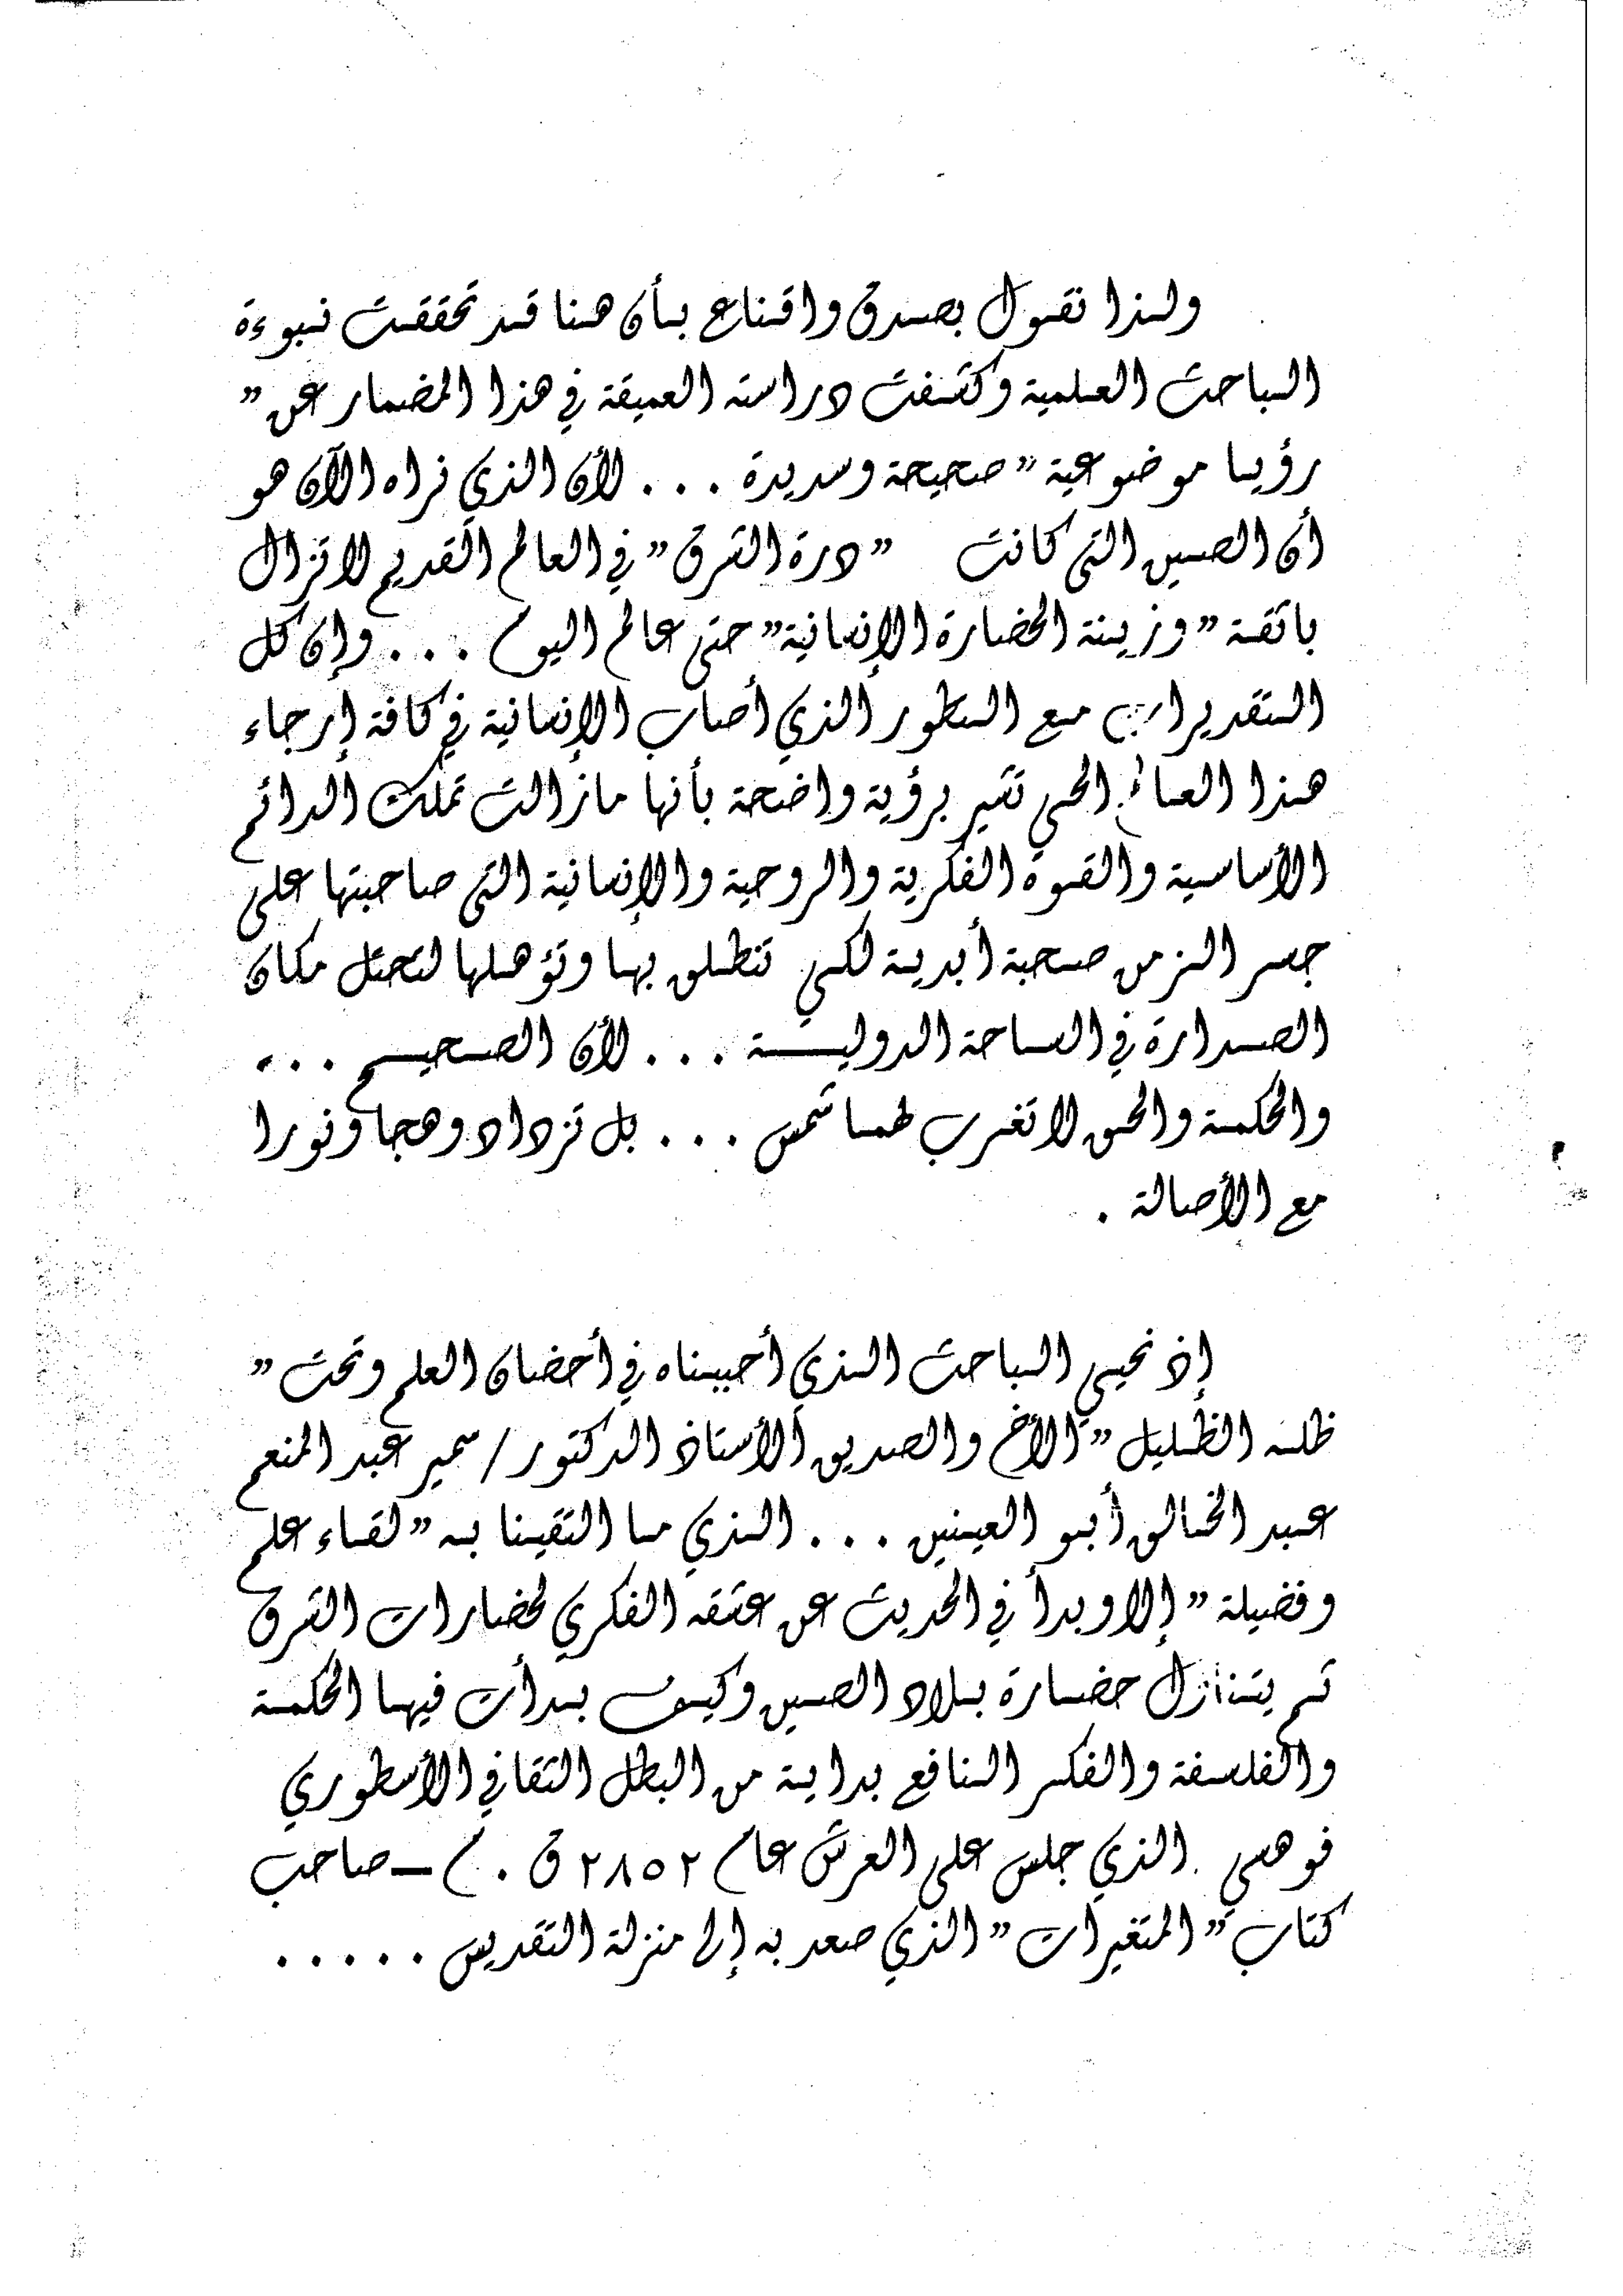 ولذا نقول بصدق واقناع بأن هنا قد تحققت نبوءة
الباحث العلمية وكشفت دراسته العميقة في هذا المضمار عن "
رؤيا موضوعية " صحيحة وسديدة . . . لأن الذي نراه الآن هو
أن الصين التى كانت " درة الشرق " في العالم القديم لا تزال
باقة " وزينة الحضارة الإنسانية " حتى عالم اليوم . . . وإن كل
التقديرات مع التطور الذي أصاب الإنسانية في كافة إرجاء
هذا العالم الحي تشير برؤية واضحة بأنها مازالت تملك الدائم
الأساسية والقوة الفكرية والروحية والإنسانية التى صاحبتها على
جسر الزمن صحبة أبدية لكي تنطلق بها وتؤهلها لتحتل مكان
الصدارة في الساحة الدولية . . . لأن الصحيح . . .
والحكمة والحق لا تغرب لهما شمس . . . بل تزداد وهجا ونورا
مع الأصالة .
إذ نحيي الباحث الذي أحببناه في أحضان العلم وتحت "
ظله الظليل " الأخ والصديق الأستاذ الدكتور / سمير عبد المنعم
عبد الخالق أبو العينين . . . الذي ما التقينا به " لقاء علم
وفضيلة " إلا وبدأ في الحديث عن عشقه الفكري لحضارات الشرق
ثم يتنازل حضارة بلاد الصين وكيف بدأت فيها الحكمة
والفلسفة والفكر النافع بداية من البطل الثقافي الأسطوري
فوهسي الذي جلس على العرش عام ٢٨٥٢ ق . م ــ صاحب
كتاب " المتغيرات " الذي صعد به إلى منزلة التقديس . . . . .